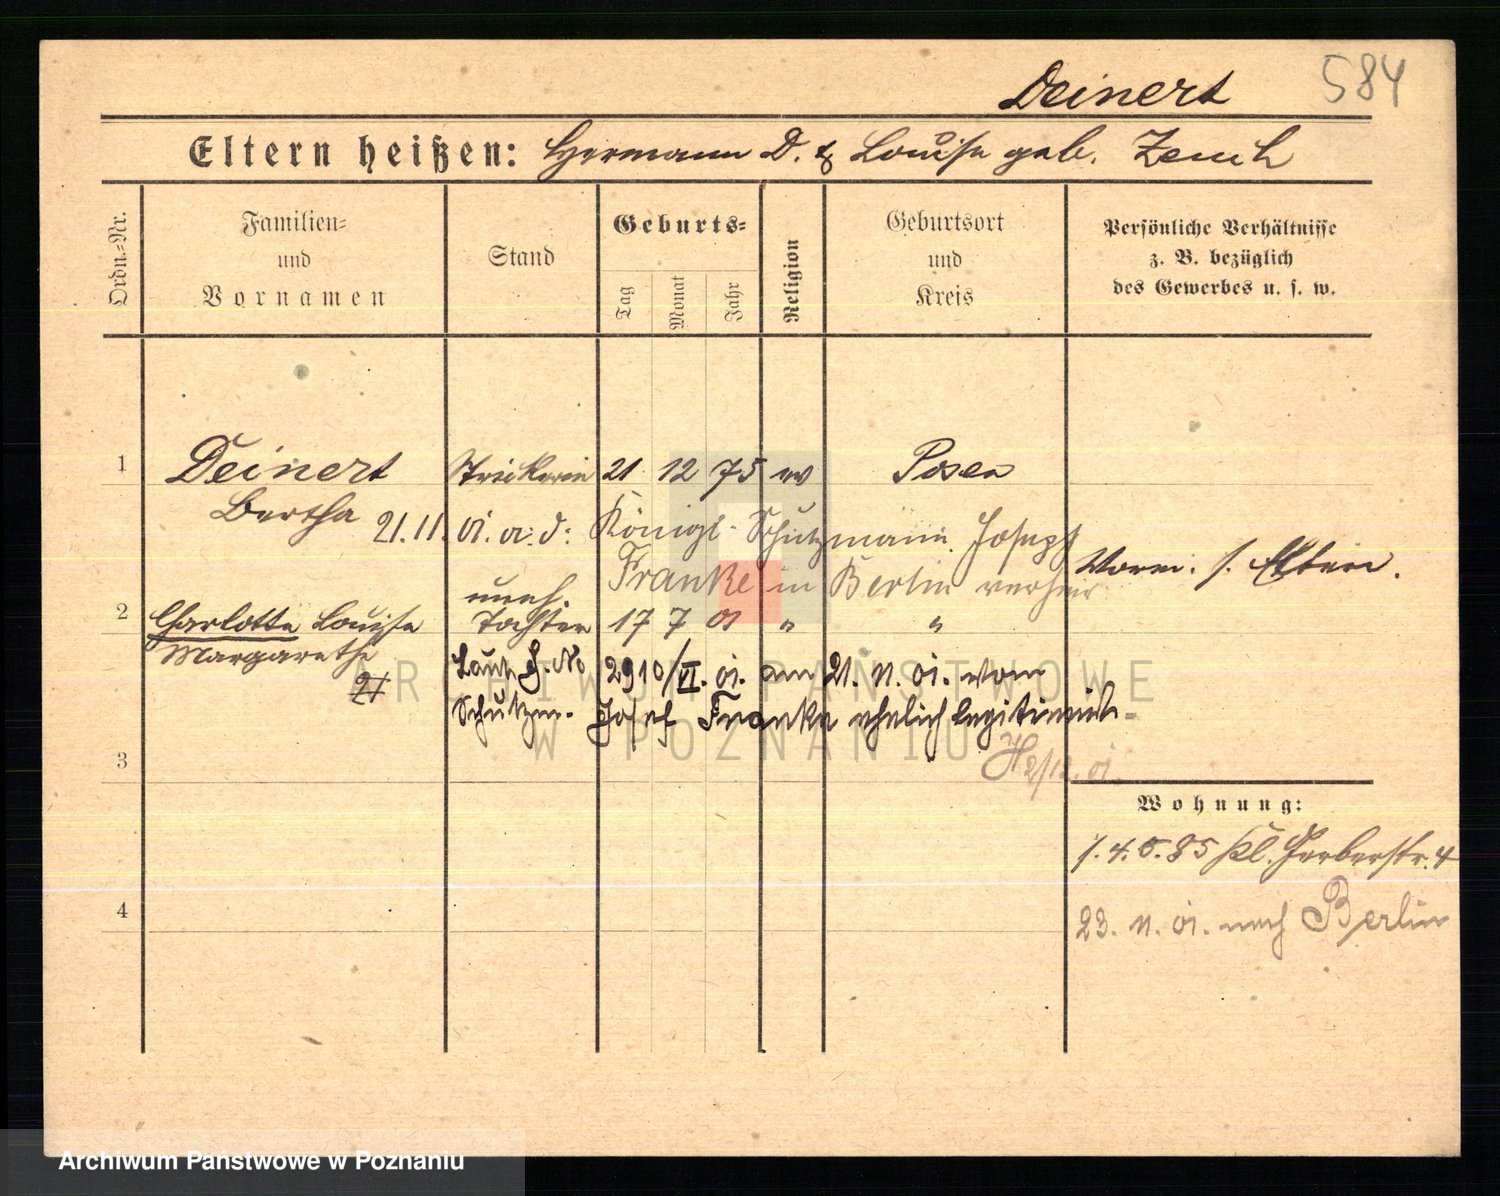 Deinert 584
Eltern heißen: Hermann D. & Louise geb. Zench
Ordn.=Nr.
Familien=
und
Vornamen
Stand
Geburts=
Tag
Monat
Jahr
Religion
Geburtsort
und
Kreis
Persönliche Verhältnisse
z. B. bezüglich
des Gewerbes u. s. w.
1 Deinert Strickerin 21 12 75 ev Posen
Bertha 21.11. 01. a. d. Königl. Schutzmann Joseph
Franke in Berlin verheir
Vorm. s. Eltern.
uneh.
2 Charlotte Louise Tochter 17 7 01 " "
Margarethe
21
Laut J. No 2910/VI. 01. am 21. 11. 01. vom
Schutzm. Josef Franke ehelich legitimirt.
3
2/12. 01.
Wohnung:
1. 4. 0. 85 Kl. Gerberstr. 4
4
23. 11. 01. nach Berlin
ARCHIWUM PAŃSTWOWE
W POZNANIU
Archiwum Państwowe w Poznaniu